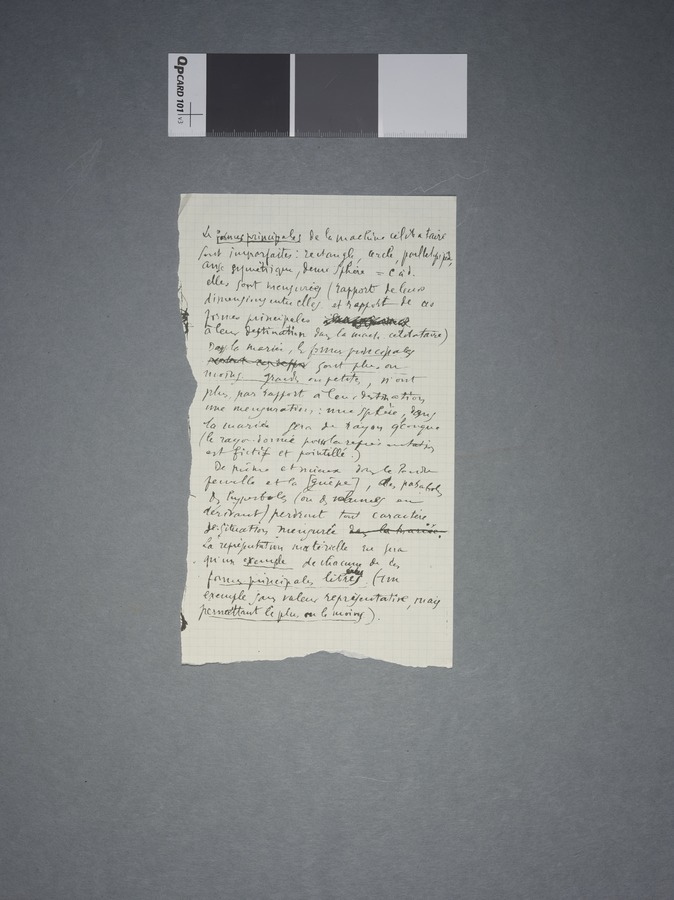 QPCARD 101 v3
Les formes principales de la machine célibataire
sont imparfaites : rectangle, cercle, parallélépipède,
anse symétrique, demi sphère = c à d.
elles sont mensurées (rapport de leurs
dimensions entre elles et rapport de ces
formes principales
à leur destination dans la mach. célibataire)
Dans la mariée, les formes principales
sont plus ou
moins grandes ou petites, n'ont
plus, par rapport à leur destination
une mensuration : une sphère, dans
la mariée sera de rayon qlconque
(le rayon donné pour la représentation
est fictif et pointillé.)
De même et mieux dans le Pendu
femelle et la [guêpe], des paraboles
des hyperboles (ou des volumes en
dérivant) perdent tout caractère
de situation mensurée dans la mariée.
La représentation matérielle ne sera
qu'un exemple de chacune de ces
formes principales libres. (un
exemple sans valeur représentative, mais
permettant le plus ou le moins).